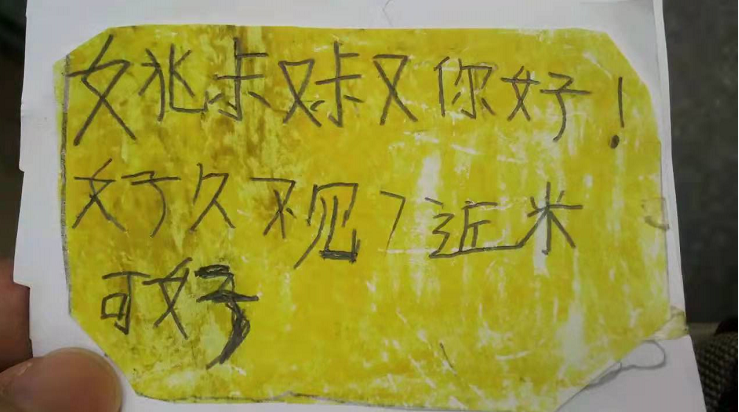 姚叔叔你好！
好久不见了近米
可好